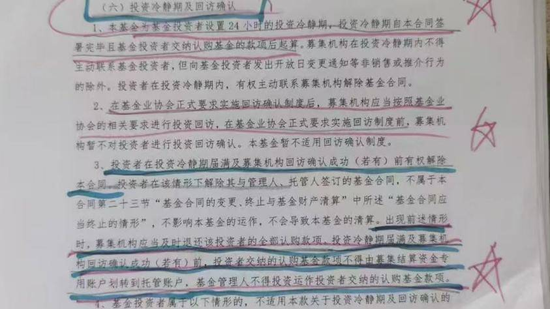 (六)投资冷静期及回访确认
1、本基金为基金投资者设置24小时的投资冷静期,投资冷静期自本合同签
署完毕且基金投资者交纳认购基金的款项后起算。募集机构在投资冷静期内不得
主动联系基金投资者,但向基金投资者发出开放日变更通知等非销售或推介行为
的除外。投资者在投资冷静期内,有权主动联系募集机构解除基金合同。
2、在基金业协会正式要求实施回访确认制度后,募集机构应当按照基金业
协会的相关要求进行投资回访,在基金业协会正式要求实施回访制度前,募集机
构暂不对投资者进行回访确认。本基金暂不适用回访确认制度。
3、投资者在投资冷静期届满及募集机构回访确认成功(若有)前有权解除
本合同。投资者在该情形下解除其与管理人、托管人签订的基金合同,不属于本
合同第二十三节“基金合同的变更、终止与基金财产清算”中所述“基金合同应
当终止的情形”,不影响本基金的运作,不会导致本基金的清算。出现前述情形
时,募集机构应当及时退还该投资者的全部认购款项。投资冷静期届满及募集机
构回访确认成功(若有)前,投资者交纳的认购基金款项不得由募集结算资金专
用账户划转到托管账户,基金管理人不得投资运作投资者交纳的认购基金款项。
4、基金投资者属于以下情形的,不适用本款关于投资冷静期及回访确认的